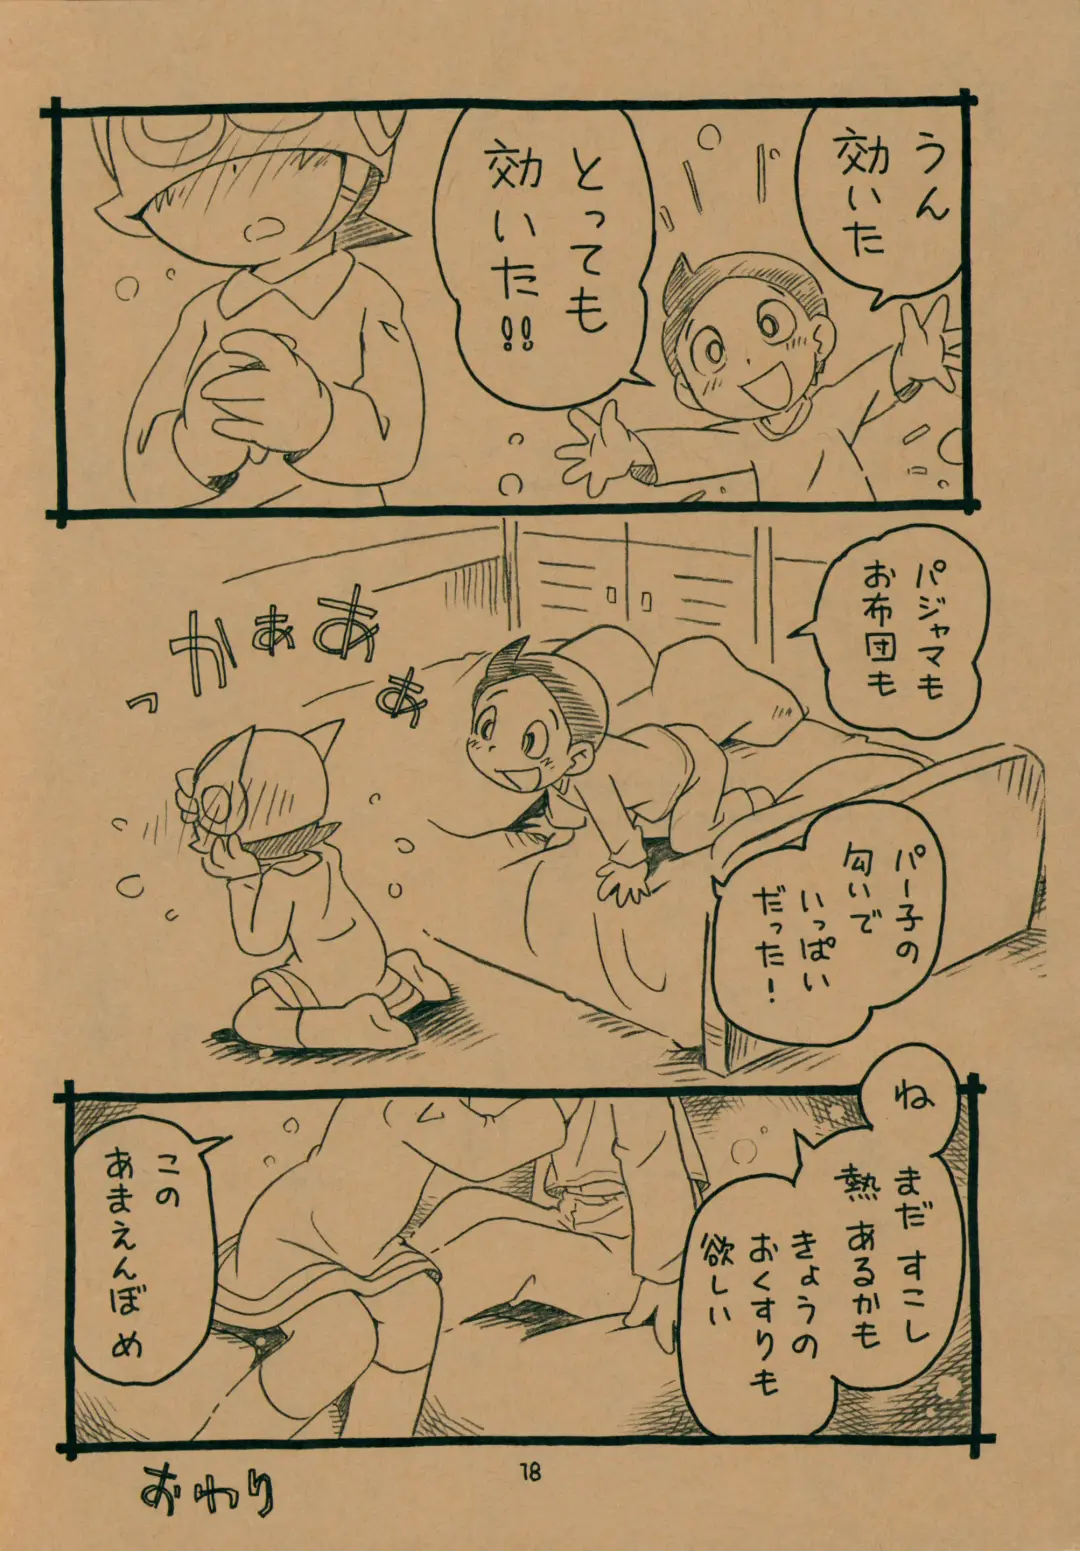 うん
効いた
とっても
効いた!!
パジャマも
お布団も
かぁあぁっ
パー子の
匂いで
いっぱい
だった!
ね
まだ すこし
熱 あるかも
きょうの
おくすりも
欲しい
この
あまえんぼめ
18
おわり